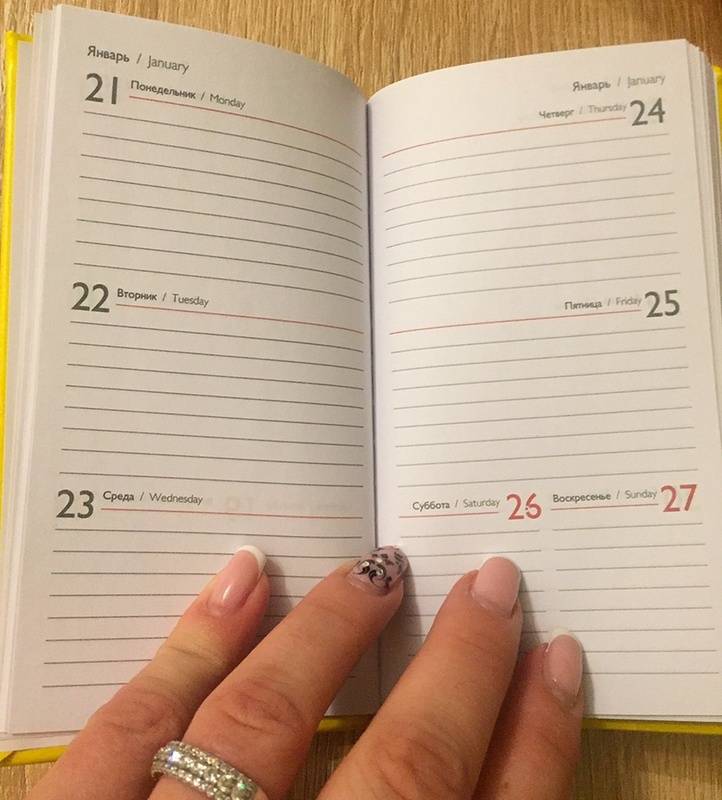 Январь / January
21 Понедельник / Monday
22 Вторник / Tuesday
23 Среда / Wednesday
Январь / January
Четверг / Thursday 24
Пятница / Friday 25
Суббота / Saturday 26
Воскресенье / Sunday 27